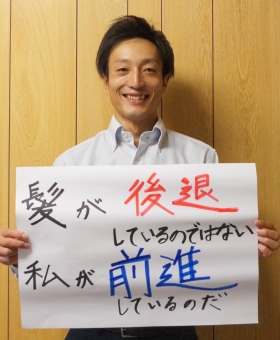 髪が 後退
しているのではない
私が 前進
しているのだ